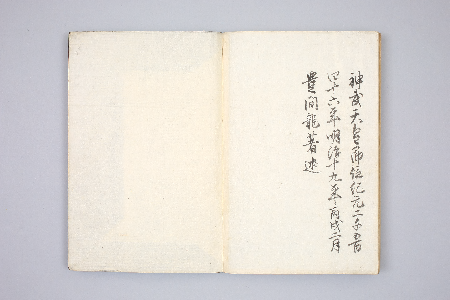 神武天皇即位紀元二千五百
四十六年明治十九年丙戌二月
豊間龍著述